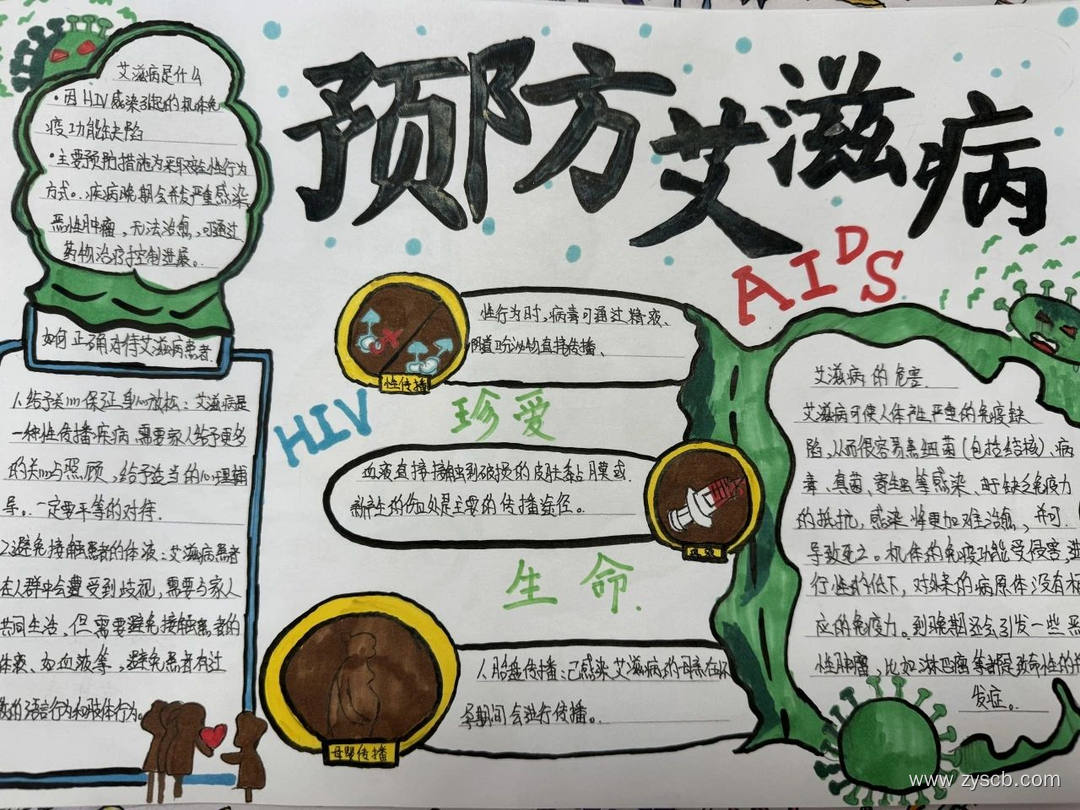 预防艾滋病
AIDS
艾滋病是什么
·因HIV感染引起的机体免
疫功能缺陷
·主要预防措施为采取安全性行为
方式。疾病晚期会并发严重感染
恶性肿瘤，无法治愈，可通过
药物治疗控制进展。
如何正确对待艾滋病患者.
1.给予关心保证身心放松：艾滋病是
一种性传播疾病，需要家人给予更多
的关心与照顾，给予适当的心理辅
导。一定要平等的对待.
2.避免接触患者的体液：艾滋病患者
在人群中会遭受到歧视，需要与家人
共同生活，但需要避免接触患者的
体液、如血液等，避免患者有过
激的语言行为和肢体行为。
性传播
性行为时，病毒可通过精液、
阴道分泌物直接传播、
HIV
珍爱
血液直接接触到破损的皮肤黏膜或
新产生的伤处是主要的传播途径。
生命.
母婴传播
1.胎盘传播：已感染艾滋病的母亲在怀
孕期间会进行传播。
艾滋病的危害.
艾滋病可使人体产生严重的免疫缺
陷，从而很容易患细菌(包括结核)、病
毒、真菌、寄生虫等感染、由于缺乏免疫力
的抵抗，感染将更加难治愈，并可
导致死亡。机体的免疫功能受侵害，进
行性的低下，对外来的病原体没有相
应的免疫力。到晚期还会引发一些恶
性肿瘤，比如淋巴瘤等都是致命性的并
发症。
www.zyscb.com